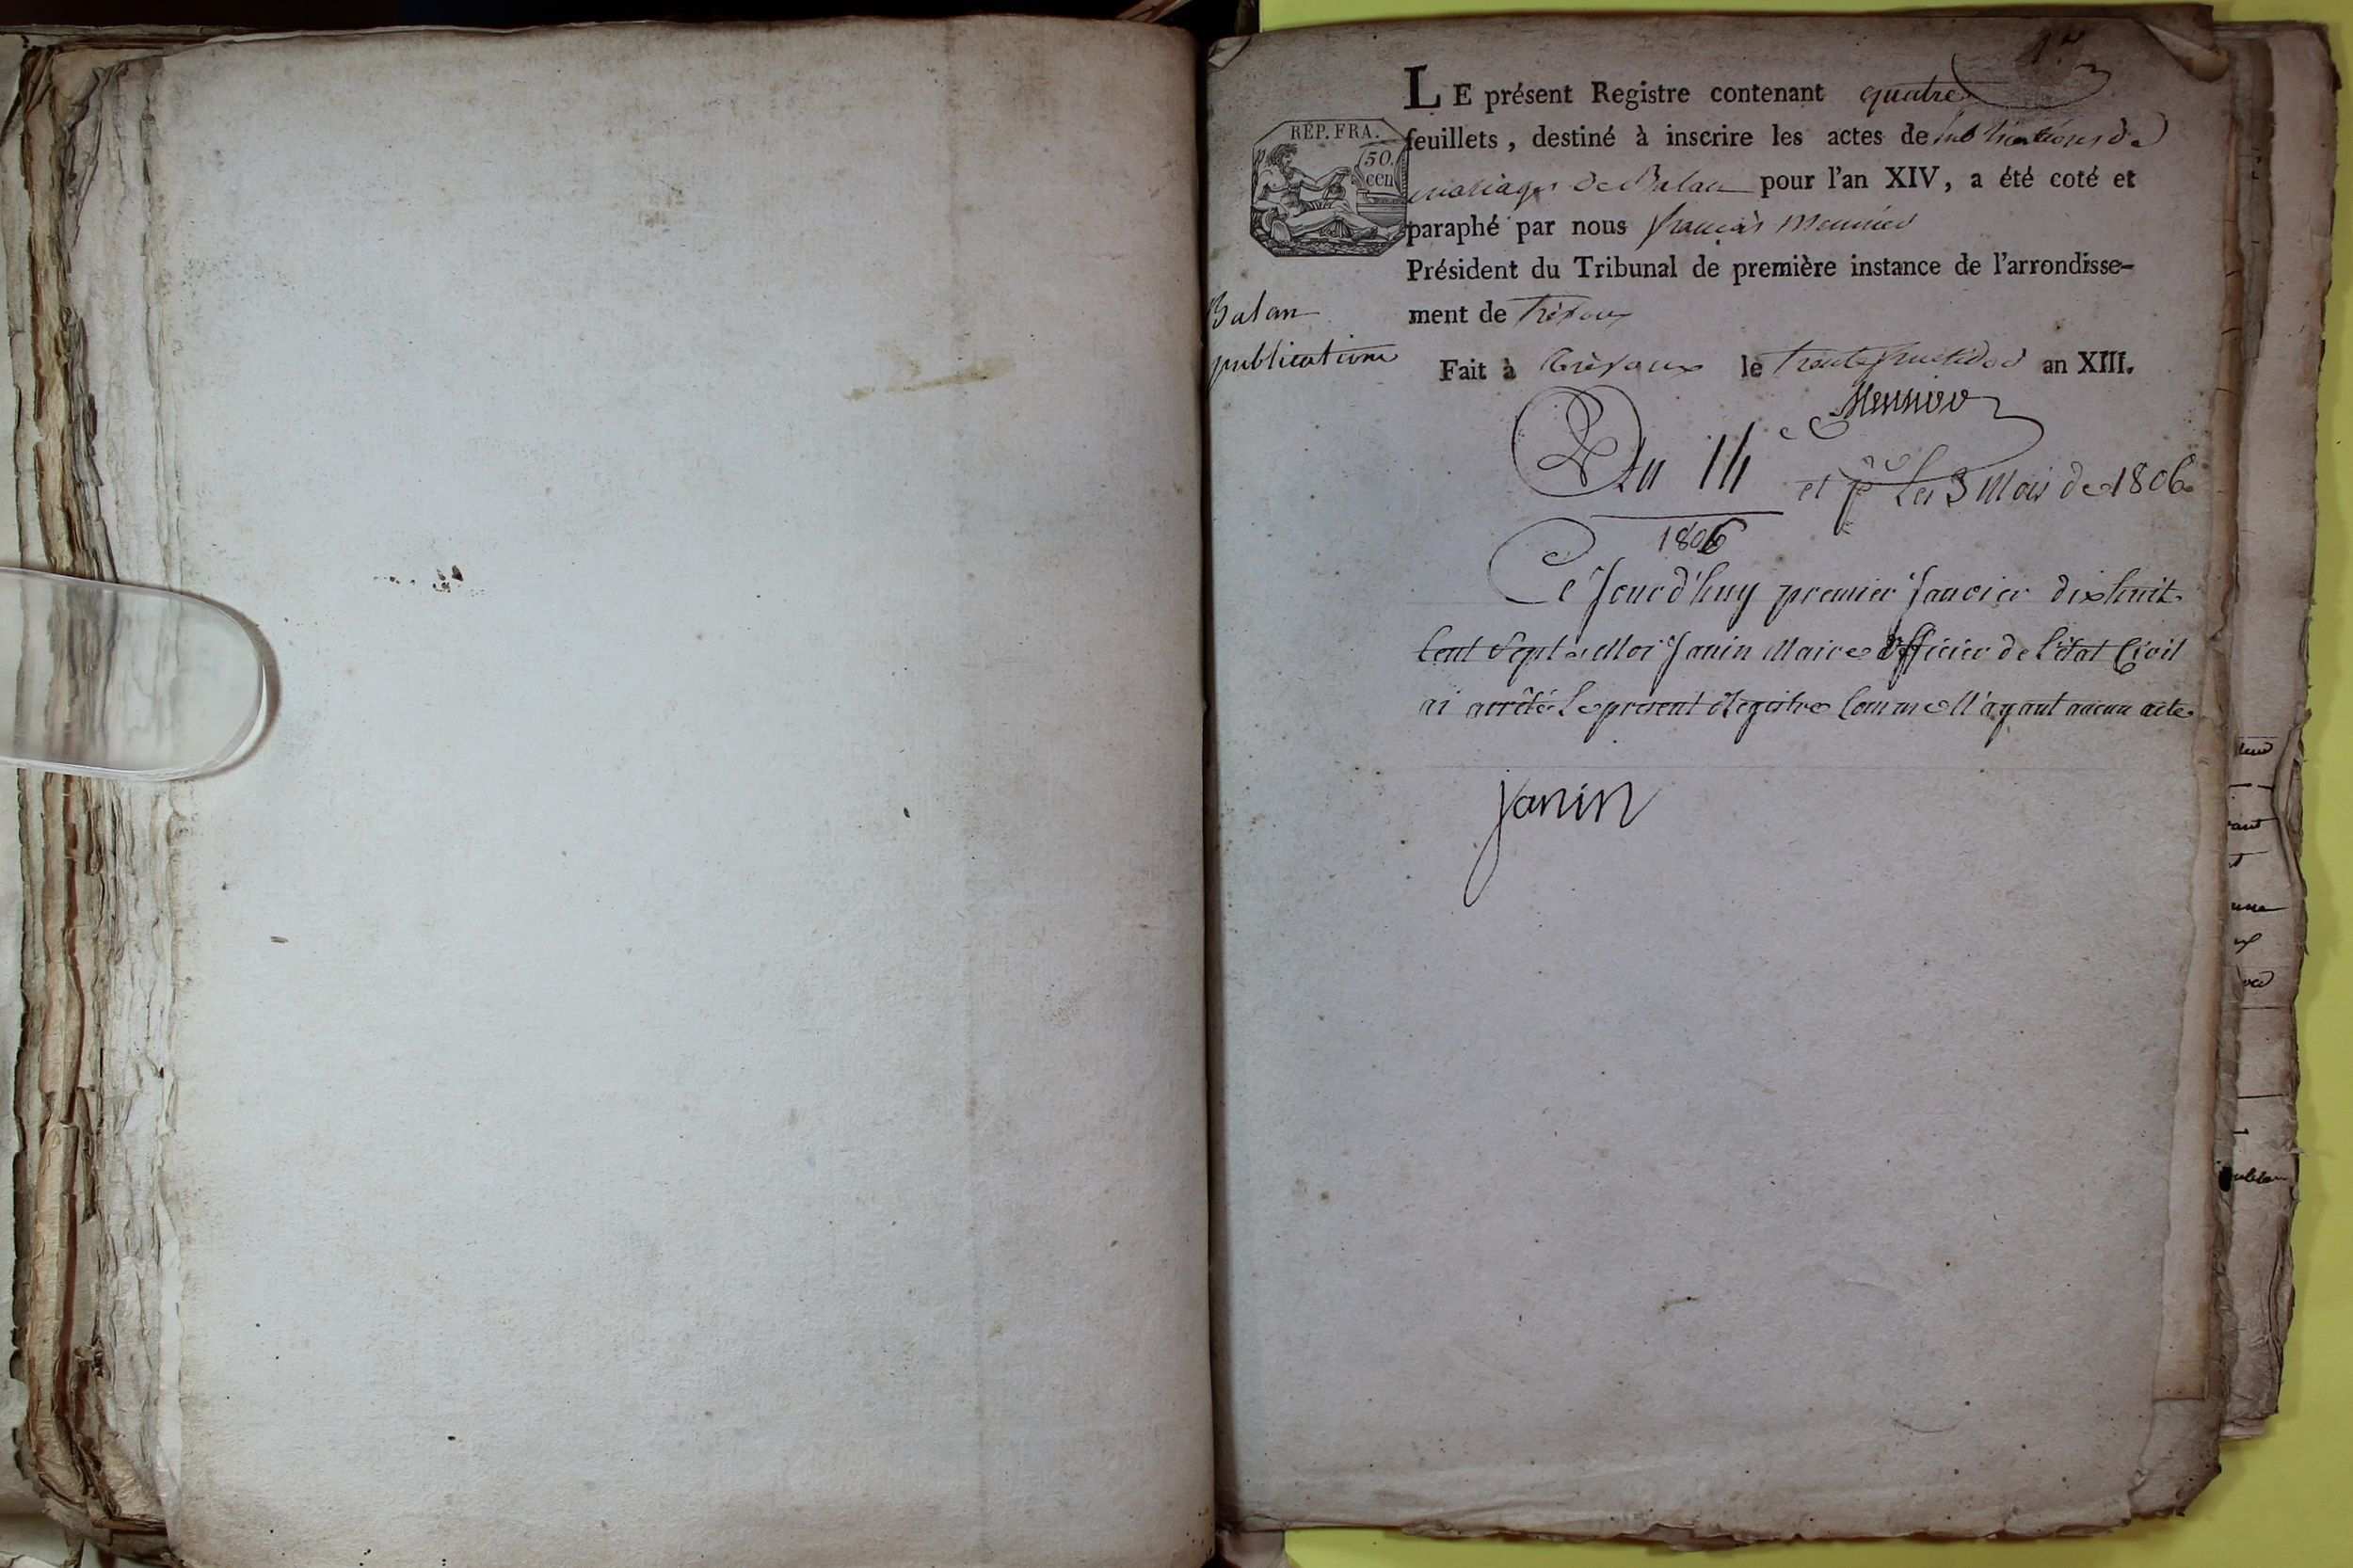 1er
LE présent Registre contenant quatre
feuillets, destiné à inscrire les actes de publications de
mariages de Balan pour l'an XIV, a été coté et
paraphé par nous françois Meunier
Président du Tribunal de première instance de l'arrondisse-
ment de Trévoux
RÉP. FRA.
50.
cen
Balan
publications
Fait à Trévoux le trente fructidor an XIII.
Meunier
An 14 et pr les 3 Mois de 1806
1806
Ce Jourd'huy premier Janvier dix huit
Cent Sept Moi Janin Maire Officier de l'état Civil
ai arrêté le présent Registre Comme N'ayant aucun acte
Janin